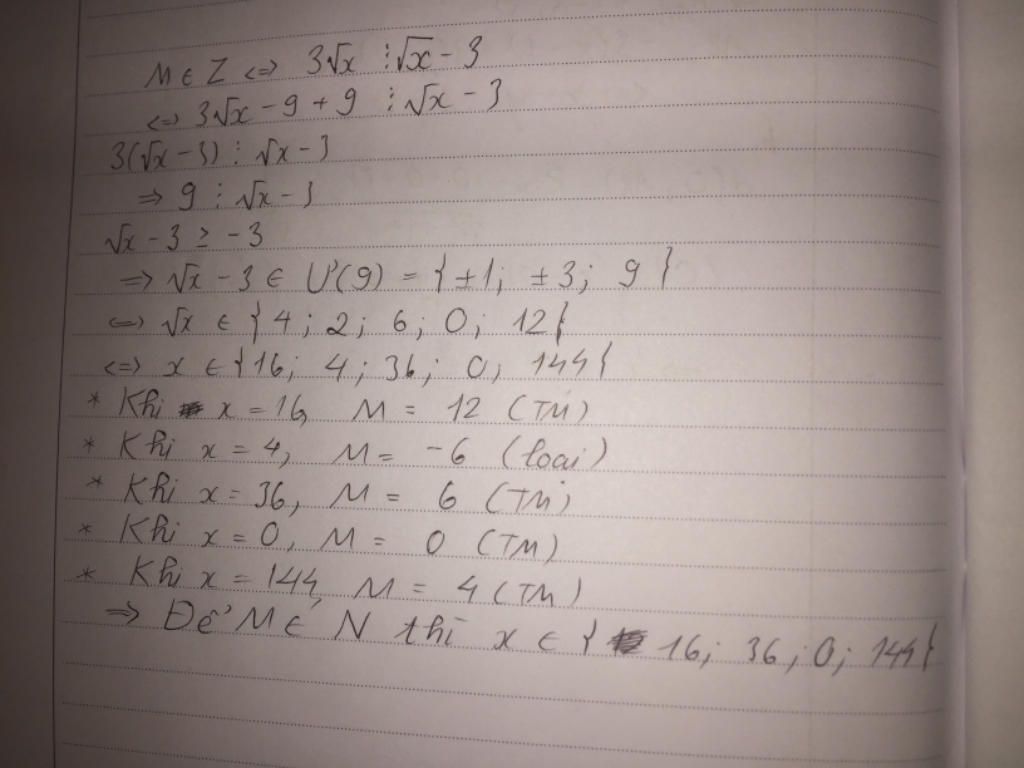 M ∈ Z <=> 3√x ⋮ √x - 3
<=> 3√x - 9 + 9 ⋮ √x - 3
3(√x - 3) ⋮ √x - 3
=> 9 ⋮ √x - 3
√x - 3 ≥ -3
=> √x - 3 ∈ Ư(9) = { ±1; ±3; 9 }
<=> √x ∈ { 4; 2; 6; 0; 12 }
<=> x ∈ { 16; 4; 36; 0; 144 }
* Khi x = 16, M = 12 (TM)
* Khi x = 4, M = -6 (loại)
* Khi x = 36, M = 6 (TM)
* Khi x = 0, M = 0 (TM)
* Khi x = 144, M = 4 (TM)
=> Để M ∈ N thì x ∈ { 16; 36; 0; 144 }